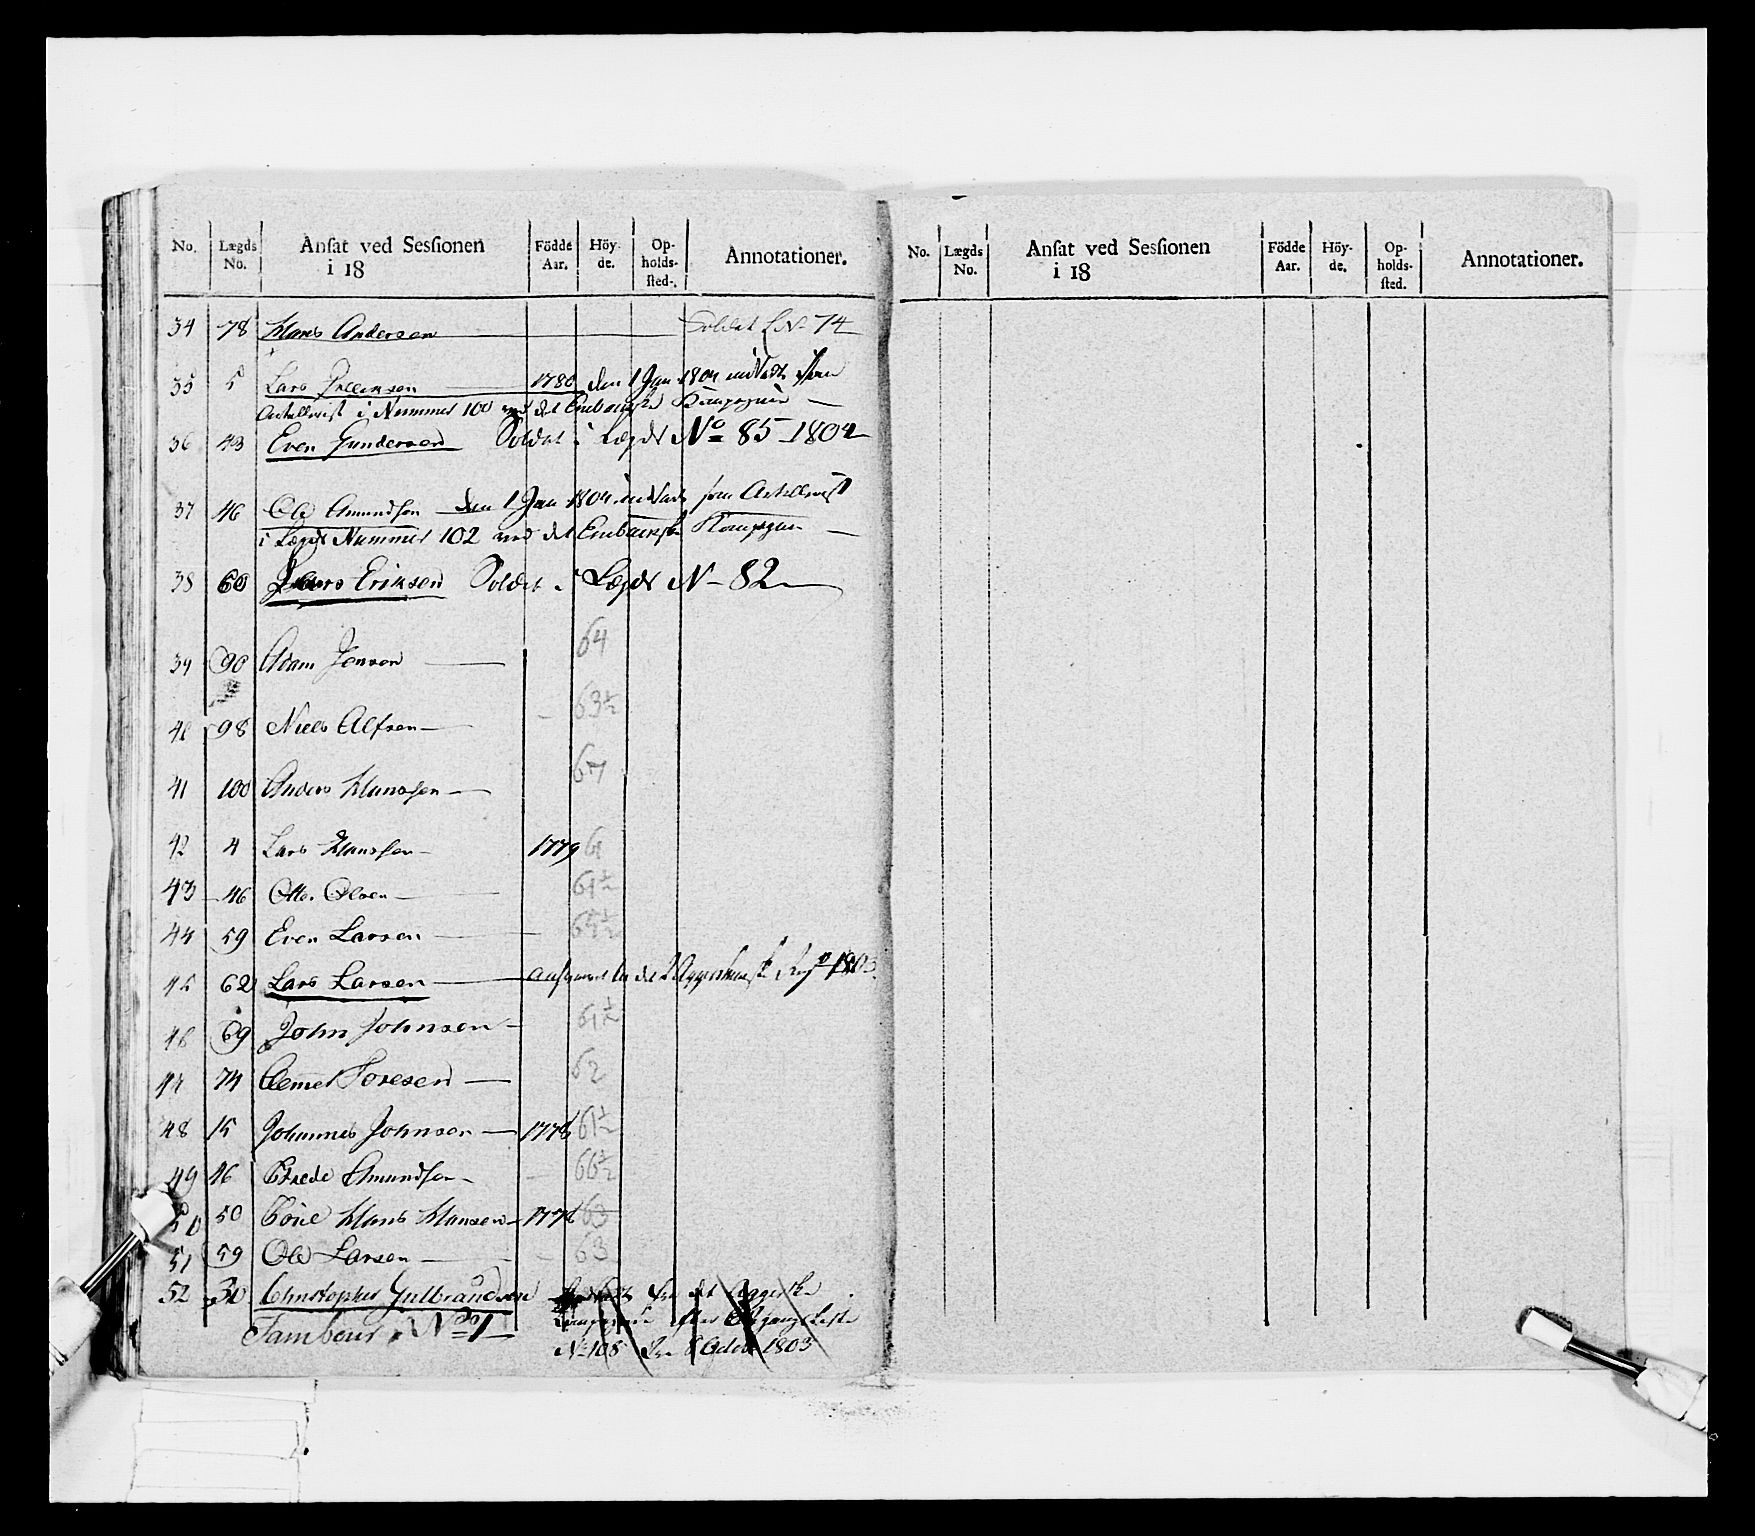 No. Lægds No. Ansat ved Sessionen i 18 Födde Aar. Höy-de. Op-holds-sted. Annotationer.
34 78 Hans Andersen Soldat L N 74
35 5 Lars 1780 den 1 Jan 1804 indsadt som
Artellerist i Nummer 100 ved det Kompagnie
36 43 Even Gundersen Soldat i Lægds No 85 1804
37 46 Ole Amundsen den 1 Jan 1804 indsadt som Artellerist
i Lægds Nummer 102 ved det Kompagnie
38 60 Lars Eriksen Soldat i Lægds N 82
39 90 Adam Jensen 64
40 98 Niels Alfsen 63½
41 100 Anders Hansen 67
42 4 Lars Hansen 1779
43 46 Otte Olsen 61½
44 59 Even Larsen
45 62 Lars Larsen til det Aggershuusk 1803
46 69 John Johnsen 61½
47 74 Toresen 62
48 15 Johannes Johnsen 1778 61½
49 16 Brede Amundsen 66½
50 50 Hans Hansen 63
51 59 Ole Larsen 63
52 30 Christopher Gulbrandsen det
Tambour No 1 Kompagnie efter Afgangs Liste
N 108 Octob 1803
No. Lægds No. Ansat ved Sessionen i 18 Födde Aar. Höy-de. Op-holds-sted. Annotationer.